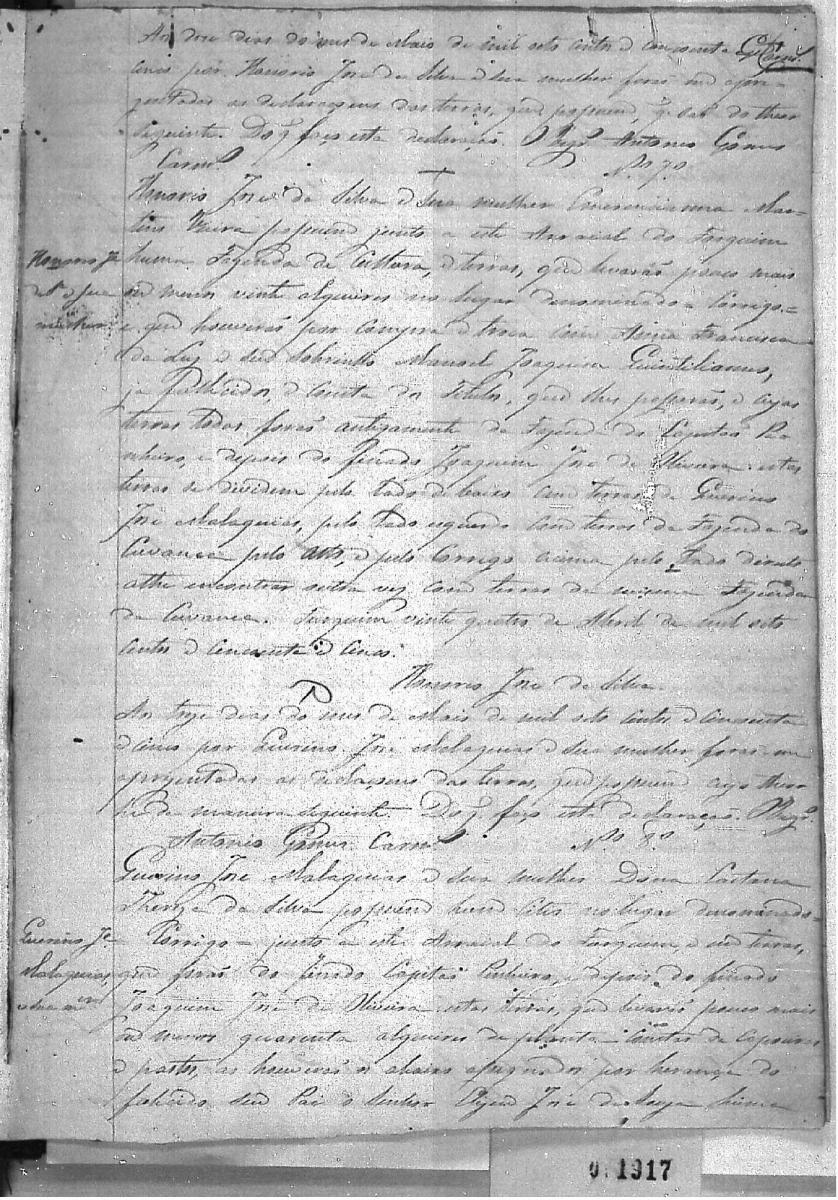 Aos doze dias do mes de Maio de mil oito centos e cincoenta e cinco
annos por Honorio José da Silva e sua mulher forão me apre-
zentadas as declaraçoens das terras, que possuem, q. são do theor
seguinte. Do q. faço esta declaração. O Vigr.º Antonio Gomes
Carm.º N.º 7.º
Honorio José da Silva e Sua mulher Emerencianna Mar-
tins Vieira possuem junto a este Arraial do Furquim
huma Fazenda de Cultura, e terras, que levarão pouco mais
ou menos vinte alqueires no lugar denomenado = Corrigo =
e que houverão por compra e troca com Anna Francisca
da Luz e seu Sobrinho Manoel Joaquim Quintilianno,
ja fallecidos, e consta dos Titulos, que lhes passarão, e cujas
terras todas forão antigamente da Fazenda do Capitão Pi-
nheiro, e depois do finado Joaquim José de Oliveira: estas
terras se dividem pelo lado de baixo com terras de Guerino
José Malaquias, pelo lado esquerdo com terras da Fazenda do
Cuvanca pelo alto, e pelo Corrigo acima pelo lado direito
athe encontrar outra vez com terras da mesma Fazenda
da Cuvanca. Furquim vinte quatro de Abril de mil oito
centos e cincoenta e cinco.
Honorio José da Silva.
Honorio Jé
da S.ª e sua
mulher
Aos treze dias do mes de Maio de mil oito centos e cincoenta
e cinco por Guerino José Malaquias e sua mulher forão-me
aprezentadas as declaraçoens das terras, que possuem cujo theor
he da maneira seguinte. Do q. faço esta declaração. O Vigr.º
Antonio Gomes Carm.º N.º 8.º
Guerino José Malaquias e sua mulher Dona Caetana
Thereza da Silva possuem hum citio no lugar denomenado =
Corrigo = junto a este Arraial do Furquim, e em terras,
que forão do finado Capitão Pinheiro, e depois do finado
Joaquim José de Oliveira estas terras, que levarão pouco mais
ou menos quarenta alqueires de planta contas de capoeiras
e pastos, as houverão os abaixo assignados por herança do
falecido seu Pai o Senhor José da huma
Guerino Jé
Malaquias,
e sua m.er
0.1917